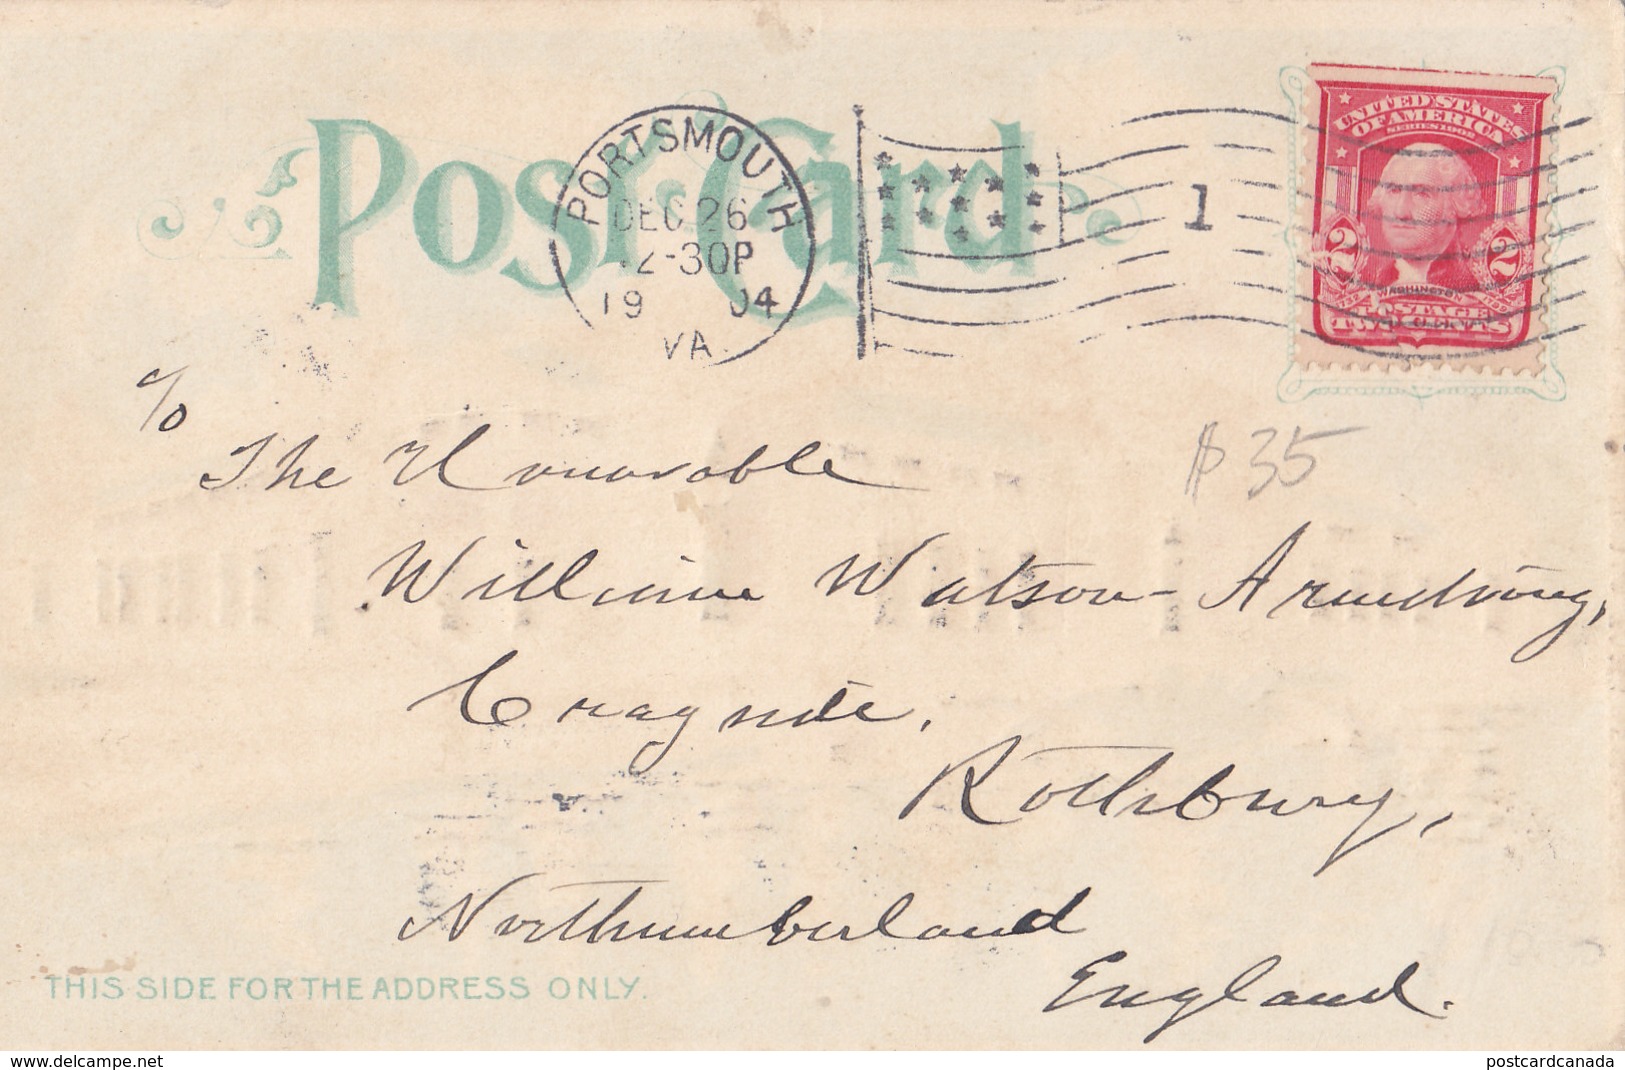 Post Card
PORTSMOUTH
DEC 26
12-30P
19 04
VA
1
UNITED STATES
OF AMERICA
SERIES 1902
2 2
WASHINGTON
POSTAGE
TWO CENTS
c/o
The Honorable
$35
William Watson-Armstrong,
Cragside,
Rothbury,
Northumberland
England.
THIS SIDE FOR THE ADDRESS ONLY.
www.delcampe.net
postcardcanada